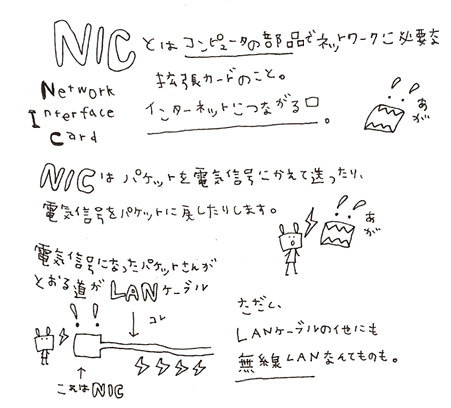 NICとはコンピュータの部品でネットワークに必要な
拡張カードのこと。
Network
Interface
Card
インターネットにつながる口。
!!
あが
NICはパケットを電気信号にかえて送ったり、
電気信号をパケットに戻したりします。
!!
あが
電気信号になったパケットさんが
とおる道がLANケーブル
!!
コレ
これはNIC
ただし、
LANケーブルのイせにも
無線LANなんてものも。